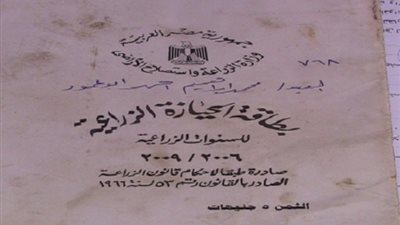 جمهورية مصر العربية
وزارة الزراعة واستصلاح الأراضى
٧٦٨
بطاقة الحيازة الزراعية
للسنوات الزراعية
٢٠٠٦ / ٢٠٠٩
صادرة طبقا لأحكام قانون الزراعة
الصادر بالقانون رقم ٥٣ لسنة ١٩٦٦
الثمن ٥ جنيهات